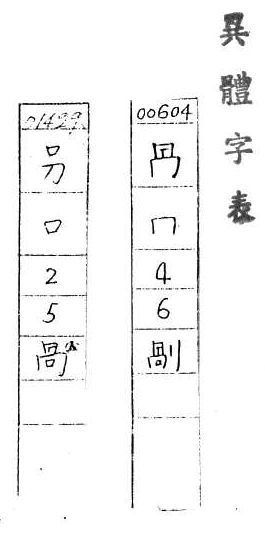 異體字表
00604
冎
冂
4
6
剮
01429
叧
口
2
5
剮